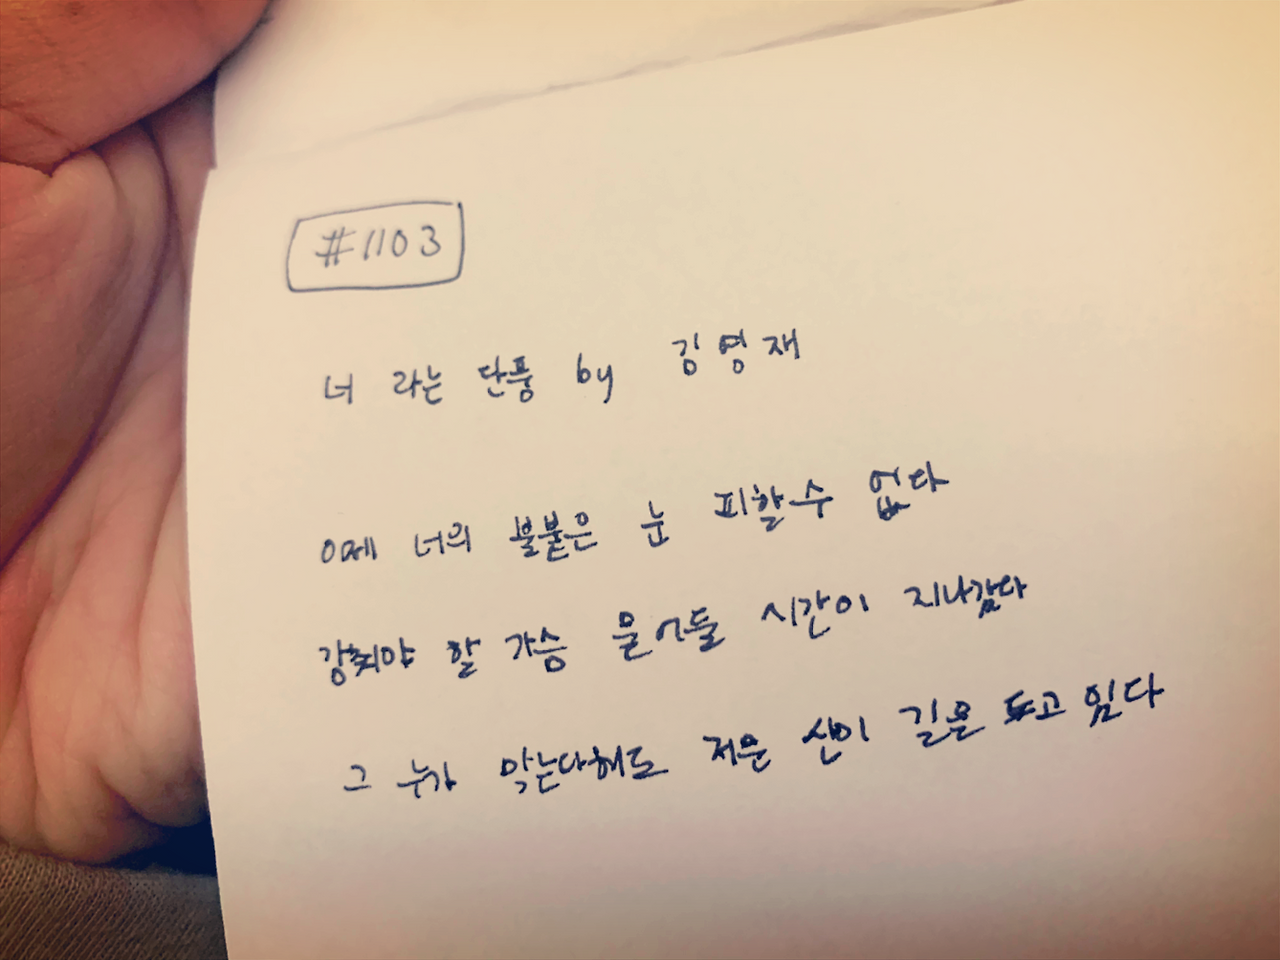 #1103
너 라는 단풍 by 김영재
이제 너의 불붙은 눈 피할수 없다
감춰야 할 가슴 물어들 시간이 지나갔다
그 누가 막는다해도 저문 산이 길을 트고 있다